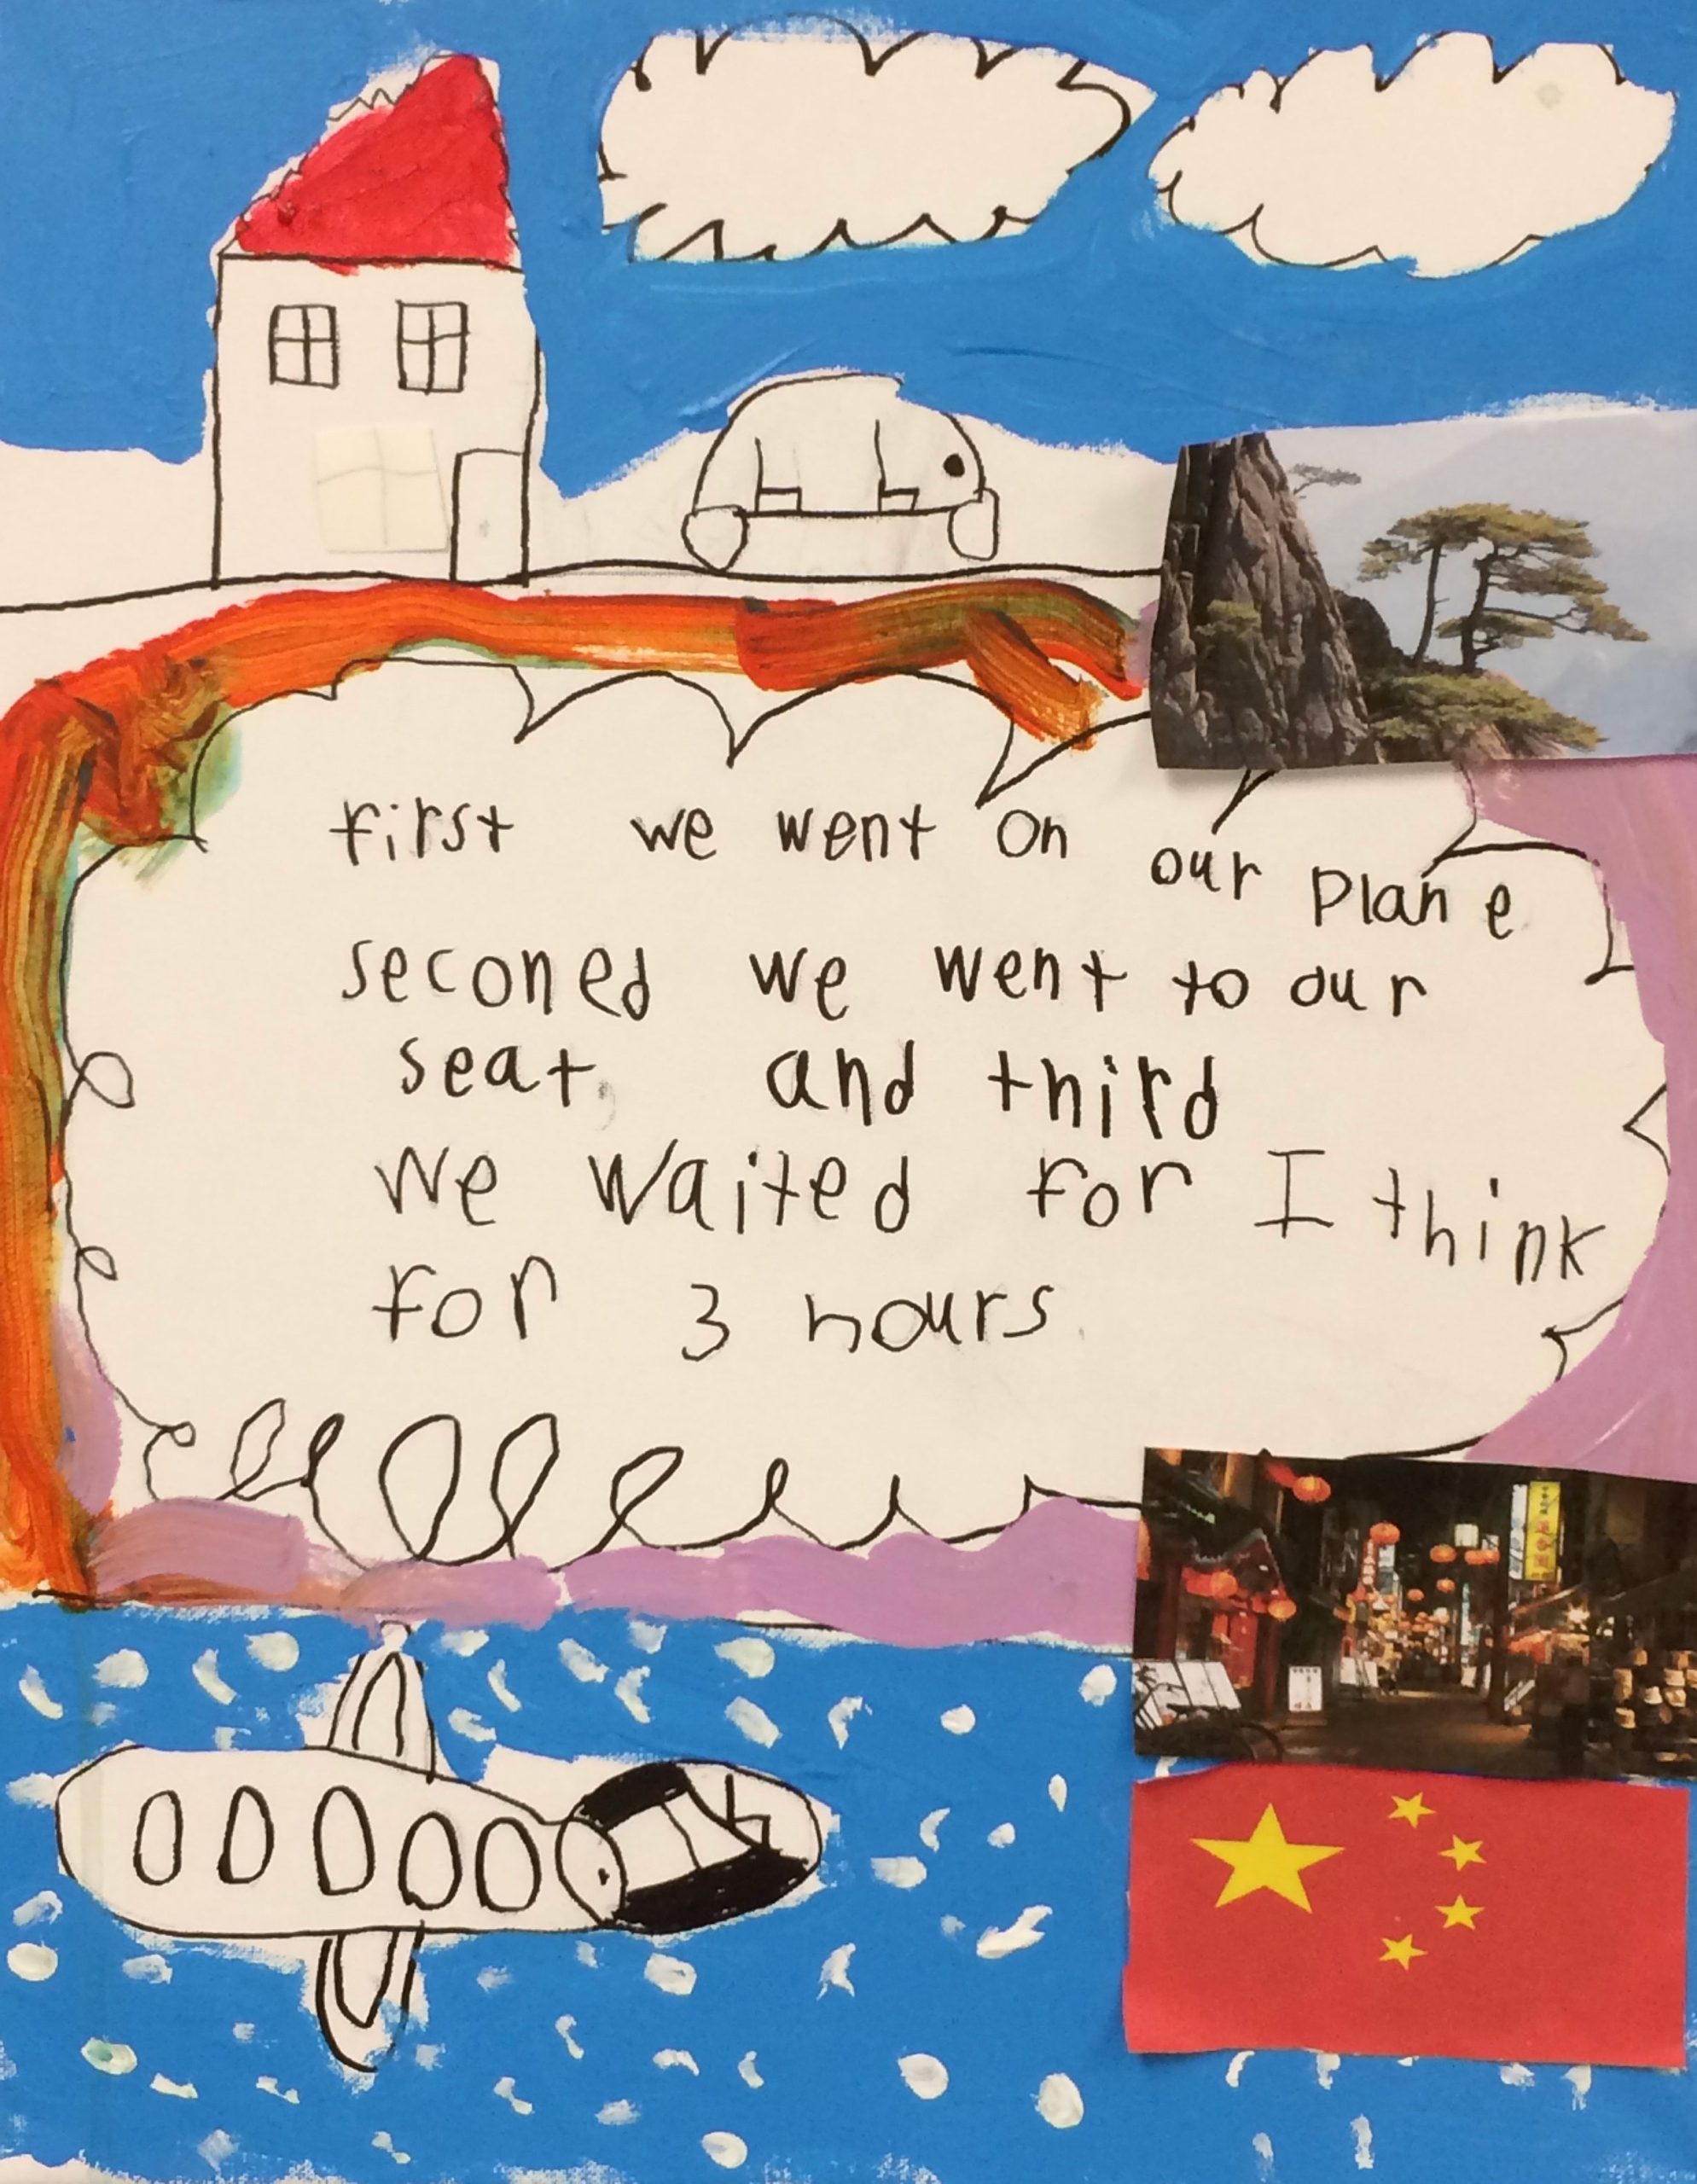 first we went on our plane
seconed we went to our
seat, and third
we waited for I think
for 3 hours.